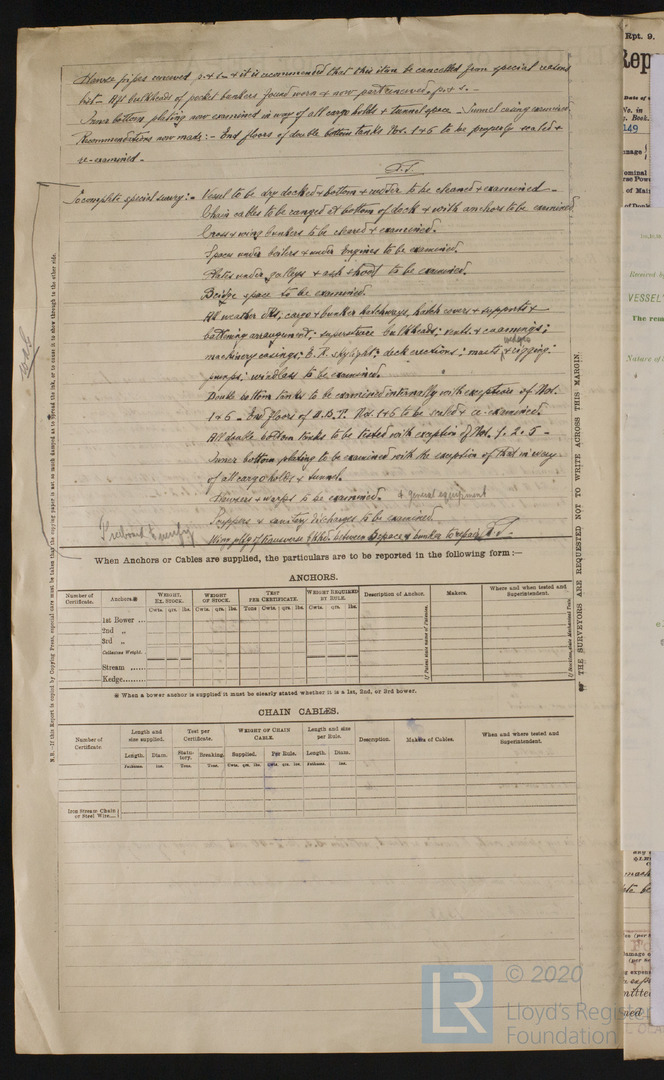 Hawse pipes renewed p. & s. - & it is recommended that this item be cancelled from special reasons
list - Aft bulkheads of pocket bunkers found worn & now part renewed, p. & s. -
Inner bottom plating now examined in way of all cargo holds & tunnel space - Tunnel casing examined
Recommendations now made: - End floors of double bottom tanks Nos. 1 & 6 to be properly scaled &
re-examined -
To complete special survey: - Vessel to be dry docked & bottom & rudder to be cleaned & examined -
Chain cables to be ranged at bottom of dock & with anchors to be examined
Cross & wing bunkers to be cleared & examined.
Spaces under boilers & under Engines to be examined.
Plates under galleys & ash shoot to be examined.
Bridge space to be examined.
All weather dks, cargo & bunker hatchways, hatch covers & supports &
battening arrangement; superstruc. bulkheads; vents & coamings;
machinery casings; E. R. skylight; deck erections; masts & rigging
pumps; windlass to be examined.
Double bottom tanks to be examined internally with exception of Nos.
1 & 6 - End floors of D.B.T. Nos. 1 & 6 to be scaled & re-examined.
All double bottom tanks to be tested with exception of Nos. 1. 2. 5 -
Inner bottom plating to be examined with the exception of that in way
of all cargo holds & tunnel.
Hawsers & warps to be examined. & general equipment
Scuppers & sanitary discharges to be examined.
Freeboard to verify
between B space & bunker to repair
When Anchors or Cables are supplied, the particulars are to be reported in the following form :—
ANCHORS.
Number of Certificate. Anchors.※ WEIGHT, EX. STOCK. WEIGHT OF STOCK. TEST PER CERTIFICATE. WEIGHT REQUIRED BY RULE. Description of Anchor. Makers. Where and when tested and Superintendent.
Cwts. qrs. lbs. Cwts. qrs. lbs. Tons Cwts. qrs. lbs. Cwts. qrs. lbs.
1st Bower ...
2nd „
3rd „
Collective Weight.
Stream ......
Kedge........
If Patent state name of Patentee.
※ When a bower anchor is supplied it must be clearly stated whether it is a 1st, 2nd, or 3rd bower.
CHAIN CABLES.
Number of Certificate Length and size supplied. Test per Certificate. WEIGHT OF CHAIN CABLE. Length and size per Rule. Description. Makers of Cables. When and where tested and Superintendent.
Length. Diam. Statutory. Breaking. Supplied. Per Rule. Length. Diam.
Fathoms. Ins. Tons. Tons. Cwts. qrs. lbs. Cwts. qrs. lbs. Fathoms. Ins.
Iron Stream Chain
or Steel Wire....
THE SURVEYORS ARE REQUESTED NOT TO WRITE ACROSS THIS MARGIN.
N.B.—If this Report is copied by Copying Press, especial care must be taken that the copying paper is not so much damped as to spread the ink, or to cause it to show through to the other side.
Rpt. 9.
Rep
Date of
No. in
149
Received by
VESSEL'
The rem
Nature of
LR
© 2020
Lloyd's Register
Foundation